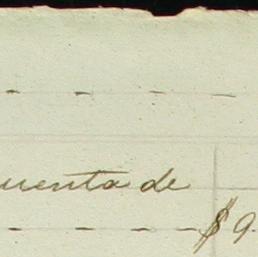 uenta de
$ 9